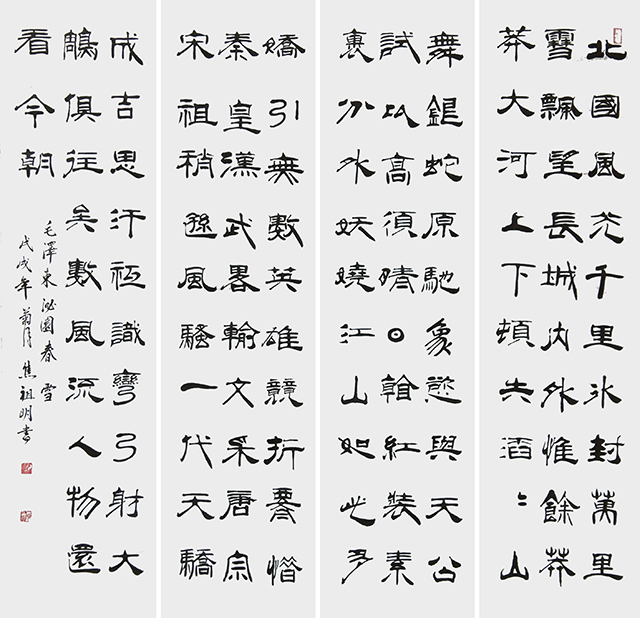 北國風光千里冰封萬里
雪飄望長城內外惟餘莽
莽大河上下頓失滔〻山
舞銀蛇原馳象慾與天公
試比高須晴日看紅裝素
裹分外妖嬈江山如此多
嬌引無數英雄競折腰惜
秦皇漢武畧輸文采唐宗
宋祖稍遜風騷一代天驕
成吉思汗祇識彎弓射大
鵰俱往矣數風流人物還
看今朝
毛澤東沁園春 雪
戊戌年菊月焦祖明書